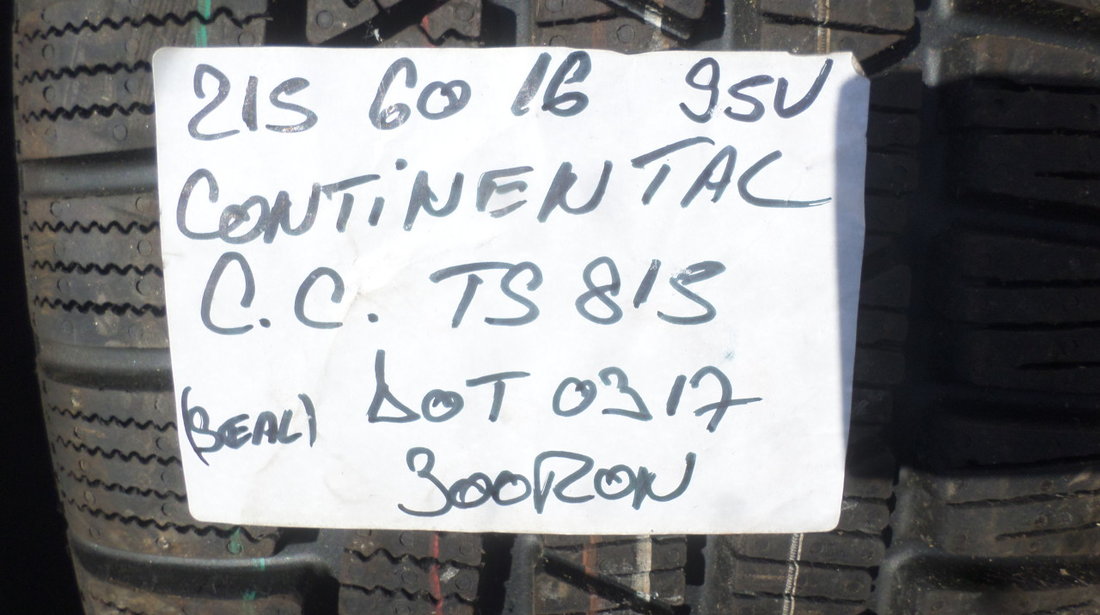 215 60 16 95V
CONTiNENTAL
C.C. TS 815
(SEAL) DOT 0317
300RON